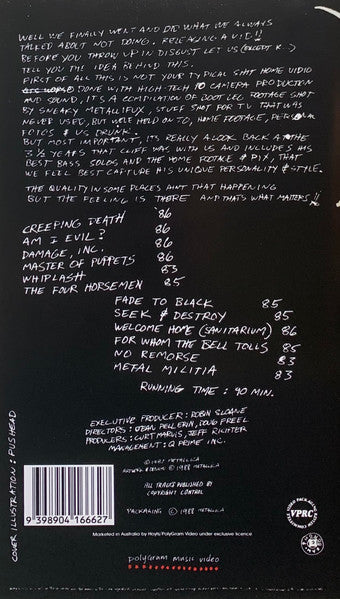 WELL WE FINALLY WENT AND DID WHAT WE ALWAYS
TALKED ABOUT NOT DOING. RELEASING A VID!!
BEFORE YOU THROW UP IN DISGUST LET US (EXCEPT K...)
TELL YOU THE IDEA BEHIND THIS.
FIRST OF ALL THIS IS NOT YOUR TYPICAL SHIT HOME VIDEO
DONE WITH HIGH-TECH 10 CAMERA PRODUCTION
AND SOUND, IT'S A COMPILATION OF BOOTLEG FOOTAGE SHOT
BY SNEAKY METALLIFUX, STUFF SHOT FOR TV THAT WAS
NEVER USED, BUT WE'VE HELD ON TO, HOME FOOTAGE, PERSONAL
FOTOS & US DRUNK.
BUT MOST IMPORTANT, IT'S REALLY A LOOK BACK AT THE
3½ YEARS THAT CLIFF WAS WITH US AND INCLUDES HIS
BEST BASS SOLOS AND THE HOME FOOTAGE & PIX, THAT
WE FEEL BEST CAPTURE HIS UNIQUE PERSONALITY & STYLE.
THE QUALITY IN SOME PLACES AINT THAT HAPPENING
BUT THE FEELING IS THERE AND THATS WHAT MATTERS!!
CREEPING DEATH 86
AM I EVIL? 86
DAMAGE, INC. 86
MASTER OF PUPPETS 86
WHIPLASH 83
THE FOUR HORSEMEN 85
FADE TO BLACK 85
SEEK & DESTROY 85
WELCOME HOME (SANITARIUM) 86
FOR WHOM THE BELL TOLLS 85
NO REMORSE 83
METAL MILITIA 83
RUNNING TIME: 90 MIN.
EXECUTIVE PRODUCER: ROBIN SLOANE
DIRECTORS: JEAN PELLERIN, DOUG FREEL
PRODUCERS: CURT MARVIS, JEFF RICHTER
MANAGEMENT: Q PRIME INC.
© 1987 METALLICA
ARTWORK & DESIGN © 1988 METALLICA
ALL TRACKS PUBLISHED BY
COPYRIGHT CONTROL
PACKAGING © 1988 METALLICA
COVER ILLUSTRATION: PUSHEAD
9 398904 166627
VPRC
Marketed in Australia by Hoyts/PolyGram Video under exclusive licence
polyGram music video